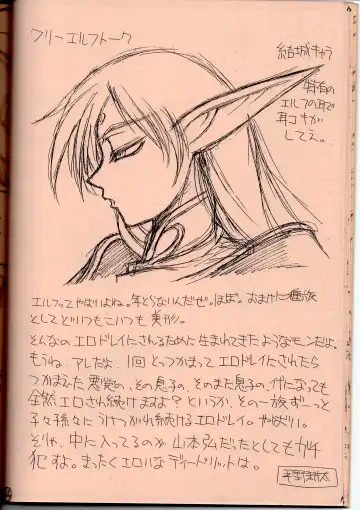 フリーエルフトーク
結城キャラ
特有の
エルフの耳で
耳コキが
してえ。
エルフってやはりよね。年とらないんだぜ。ほぼ。おまけに種族
としてどいつもこいつも美形。
そんなのエロドレイにされるために生まれてきたようなモンだよ。
もうね、アレだよ、1回とっつかまってエロドレイにされたら
つかまえた悪党の、その息子の、そのまた息子の、代になっても
全然エロされ続けますよ？というか、その一族ずーっと
子々孫々にうけつがれ続けるエロドレイ。やばい。
ぞりゃ、中に入ってるのが山本弘だったとしてもガチ
犯すよ。まったくエロいなディードリットは。